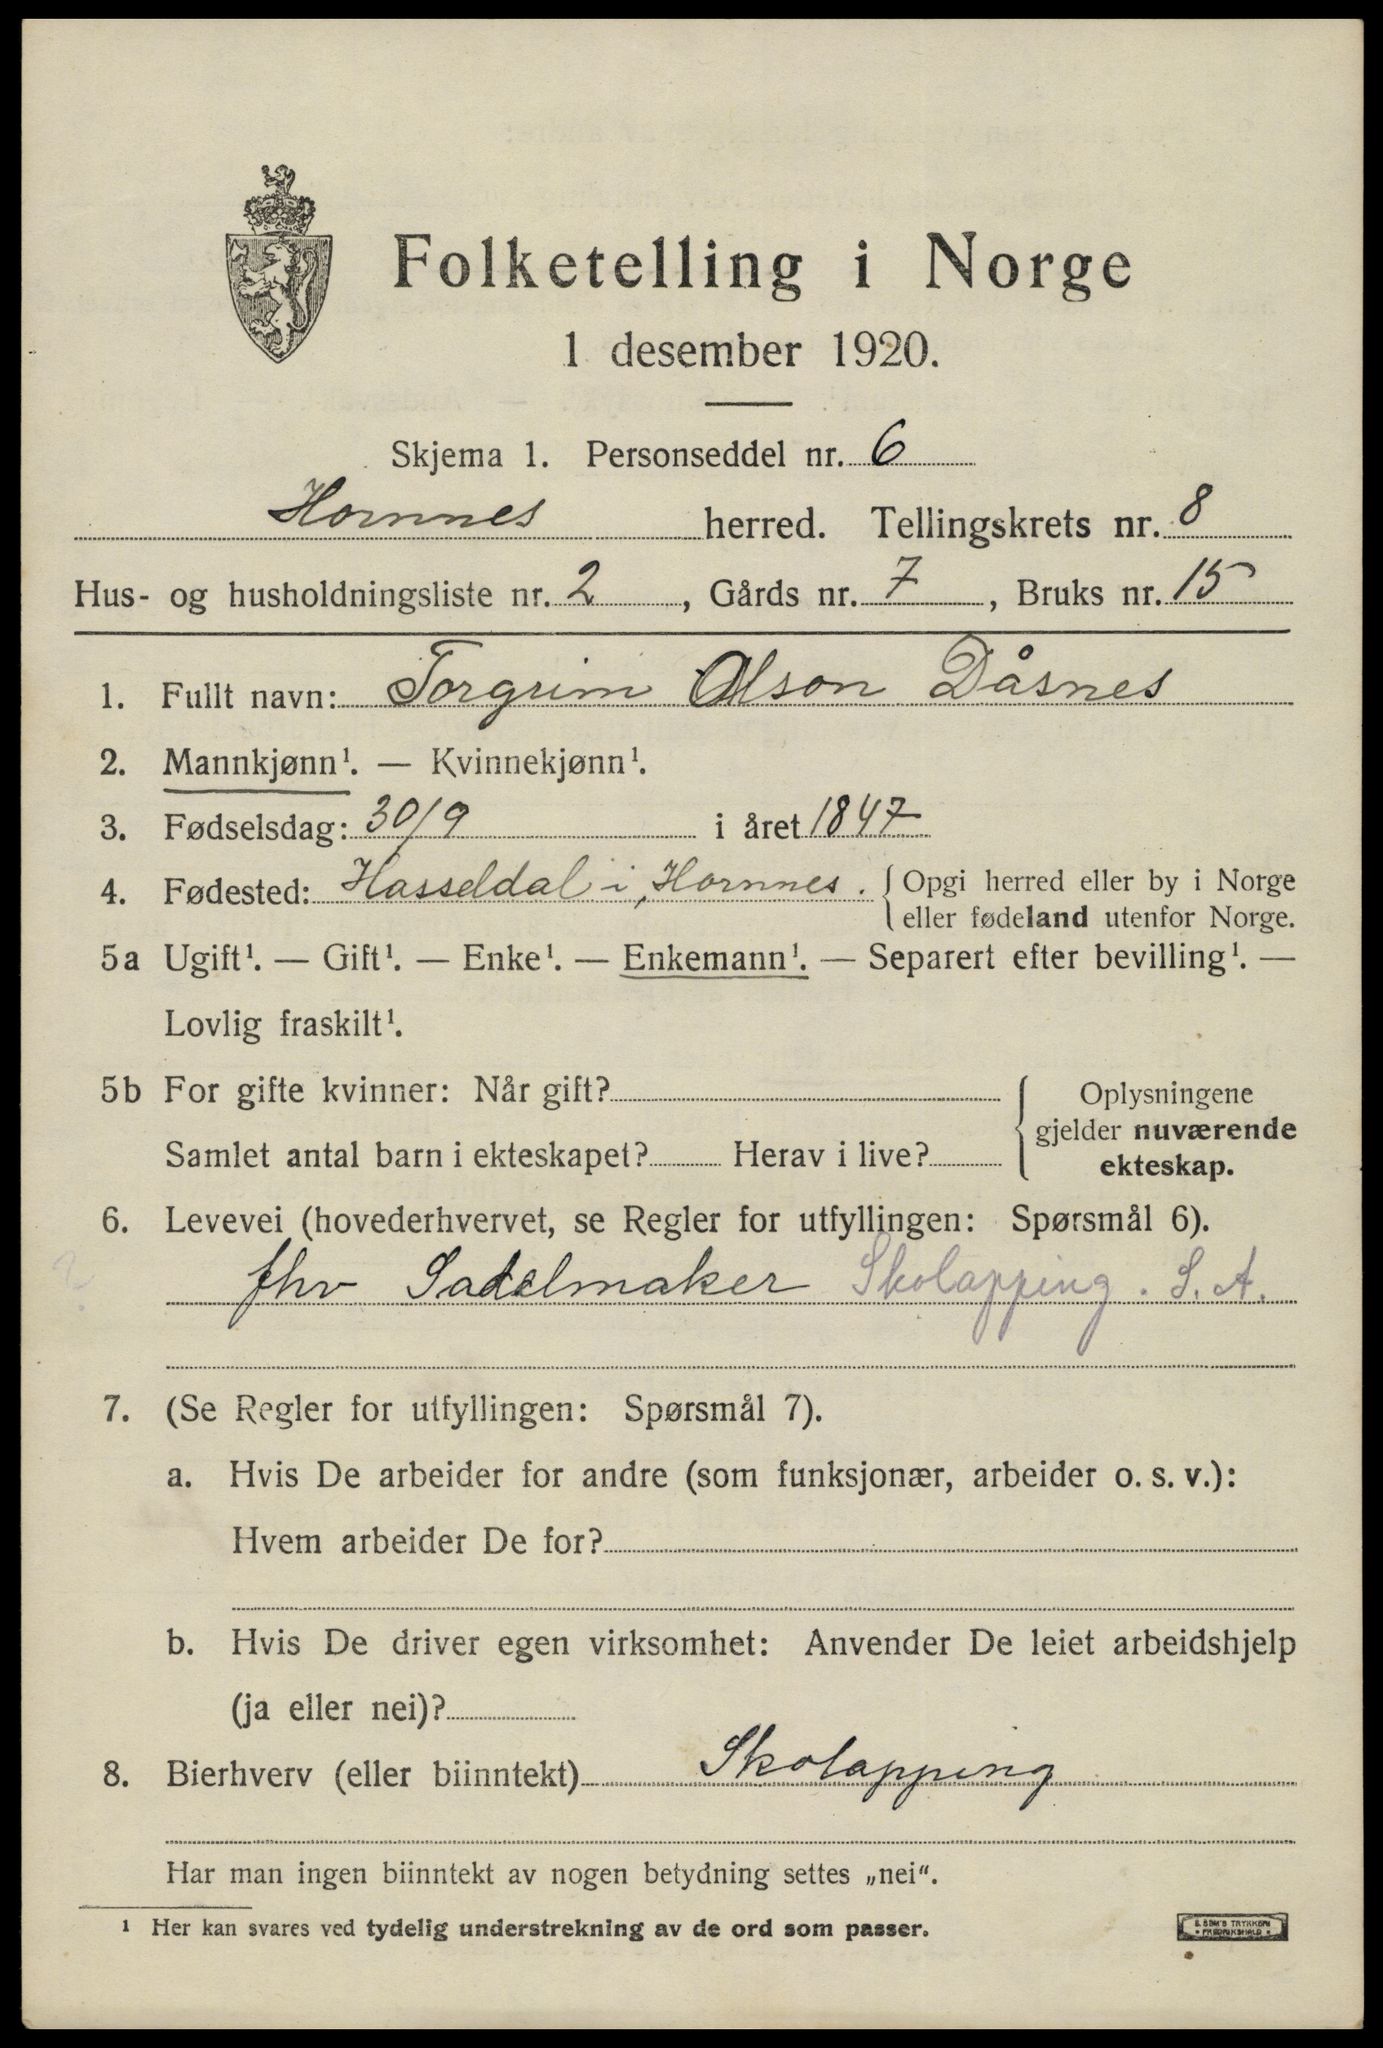 Folketelling i Norge
1 desember 1920.
Skjema 1. Personseddel nr. 6
Hornnes herred. Tellingskrets nr. 8
Hus- og husholdningsliste nr. 2, Gårds nr. 7, Bruks nr. 15
1. Fullt navn: Torgrim Olson Dåsnes
2. Mannkjønn¹. — Kvinnekjønn¹.
3. Fødselsdag: 30/9 i året 1847
4. Fødested: Hasseldal i, Hornnes. { Opgi herred eller by i Norge
eller fødeland utenfor Norge.
5a Ugift¹. — Gift¹. — Enke¹. — Enkemann¹. — Separert efter bevilling¹. —
Lovlig fraskilt¹.
5b For gifte kvinner: Når gift? { Oplysningene
gjelder nuværende
Samlet antal barn i ekteskapet? Herav i live? ekteskap.
6. Levevei (hovederhvervet, se Regler for utfyllingen: Spørsmål 6).
? fhv Sadelmaker Skolapping. S. A.
7. (Se Regler for utfyllingen: Spørsmål 7).
a. Hvis De arbeider for andre (som funksjonær, arbeider o. s. v.):
Hvem arbeider De for?
b. Hvis De driver egen virksomhet: Anvender De leiet arbeidshjelp
(ja eller nei)?
8. Bierhverv (eller biinntekt) Skolapping
Har man ingen biinntekt av nogen betydning settes „nei“.
¹ Her kan svares ved tydelig understrekning av de ord som passer.
E. SEM'S TRYKKERI
• FREDRIKSHALD •